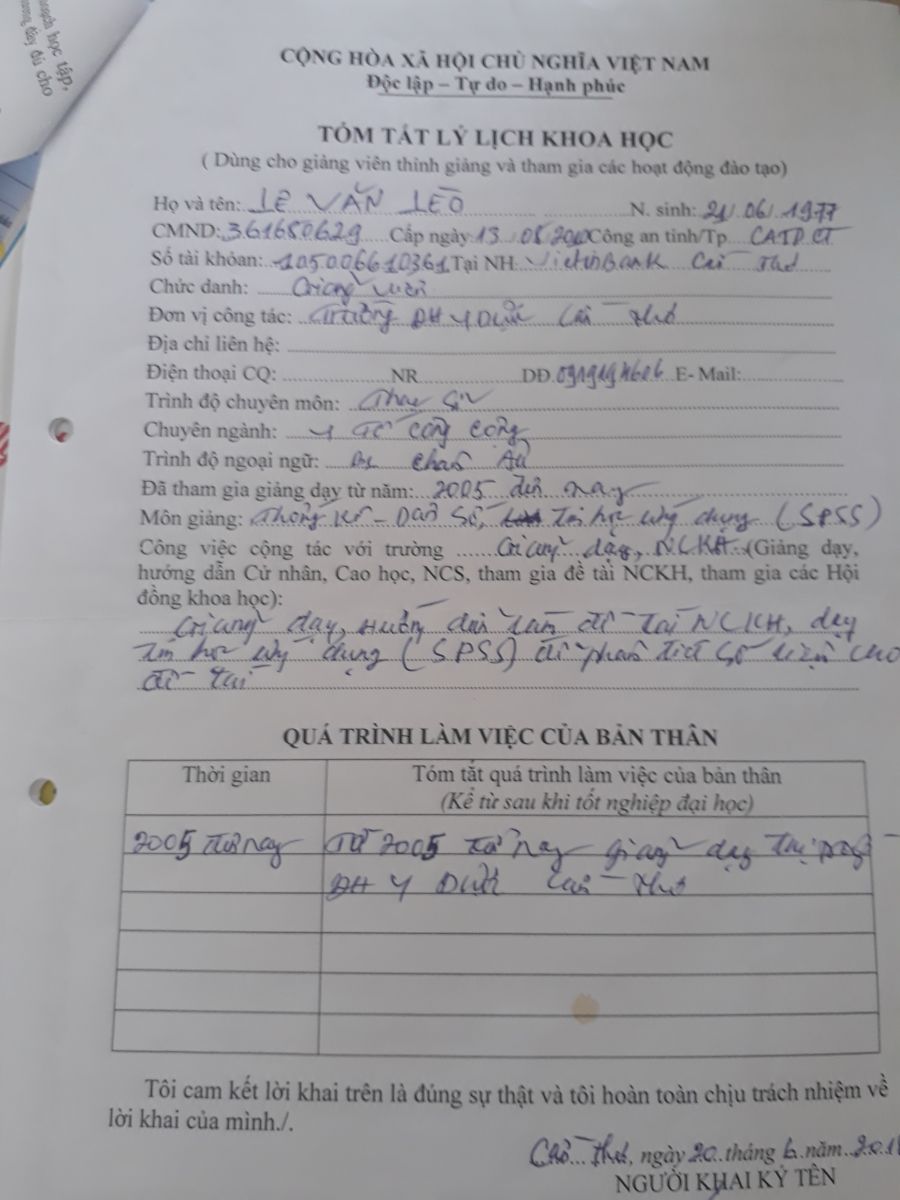 oạch học tập,
ương, đầy đủ cho
CỘNG HÒA XÃ HỘI CHỦ NGHĨA VIỆT NAM
Độc lập – Tự do – Hạnh phúc
TÓM TẮT LÝ LỊCH KHOA HỌC
( Dùng cho giảng viên thỉnh giảng và tham gia các hoạt động đào tạo)
Họ và tên: LÊ VĂN LEO N. sinh: 21/06/1977
CMND: 361650629 Cấp ngày: 13 Công an tỉnh/Tp CATP CT
Số tài khóan: 105006610361 Tại NH: Vietinbank Cần Thơ
Chức danh: Giảng viên
Đơn vị công tác: Trường ĐH Y Dược Cần Thơ
Địa chỉ liên hệ:
Điện thoại CQ: NR DĐ E- Mail:
Trình độ chuyên môn: Thạc sỹ
Chuyên ngành: Y Tế công cộng
Trình độ ngoại ngữ: B1 Châu Âu
Đã tham gia giảng dạy từ năm: 2005 đến nay
Môn giảng: Thống kê - Dân số, Tin học ứng dụng (SPSS)
Công việc cộng tác với trường Giảng dạy, NCKH (Giảng dạy,
hướng dẫn Cử nhân, Cao học, NCS, tham gia đề tài NCKH, tham gia các Hội
đồng khoa học):
Giảng dạy, Hướng dẫn làm đề tài NCKH, dạy
tin học ứng dụng (SPSS) để phân tích số liệu cho
đề tài
QUÁ TRÌNH LÀM VIỆC CỦA BẢN THÂN
Thời gian Tóm tắt quá trình làm việc của bản thân
(Kể từ sau khi tốt nghiệp đại học)
2005 tới nay Từ 2005 tới nay giảng dạy tại trường
ĐH Y Dược Cần Thơ
Tôi cam kết lời khai trên là đúng sự thật và tôi hoàn toàn chịu trách nhiệm về
lời khai của mình./.
Cần Thơ, ngày 20 tháng 6 năm 201
NGƯỜI KHAI KÝ TÊN